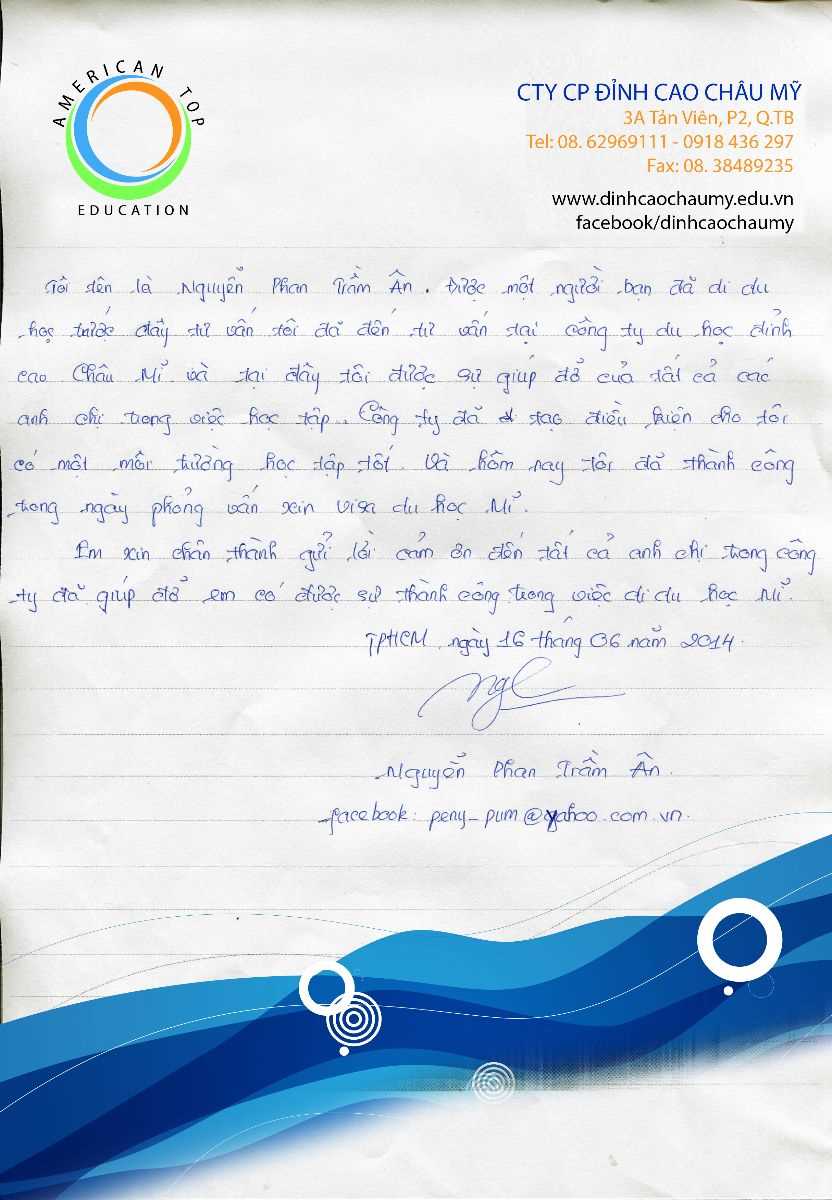 AMERICAN TOP
EDUCATION
CTY CP ĐỈNH CAO CHÂU MỸ
3A Tản Viên, P2, Q.TB
Tel: 08. 62969111 - 0918 436 297
Fax: 08. 38489235
www.dinhcaochaumy.edu.vn
facebook/dinhcaochaumy
Tôi tên là Nguyễn Phan Trầm Ân. Được một người bạn đã di du
học trước đây tư vấn tôi đã đến tư vấn tại công ty du học đỉnh
cao Châu Mĩ và tại đây tôi được sự giúp đỡ của tất cả các
anh chị trong việc học tập. Công ty đã tạo điều kiện cho tôi
có một môi trường học tập tốt. Và hôm nay tôi đã thành công
trong ngày phỏng vấn xin visa du học Mĩ.
Em xin chân thành gửi lời cảm ơn đến tất cả anh chị trong công
ty đã giúp đỡ em có được sự thành công trong việc di du học Mĩ.
TPHCM, ngày 16 tháng 06 năm 2014.
Nguyễn Phan Trầm Ân.
facebook: peny_pum@yahoo.com.vn.